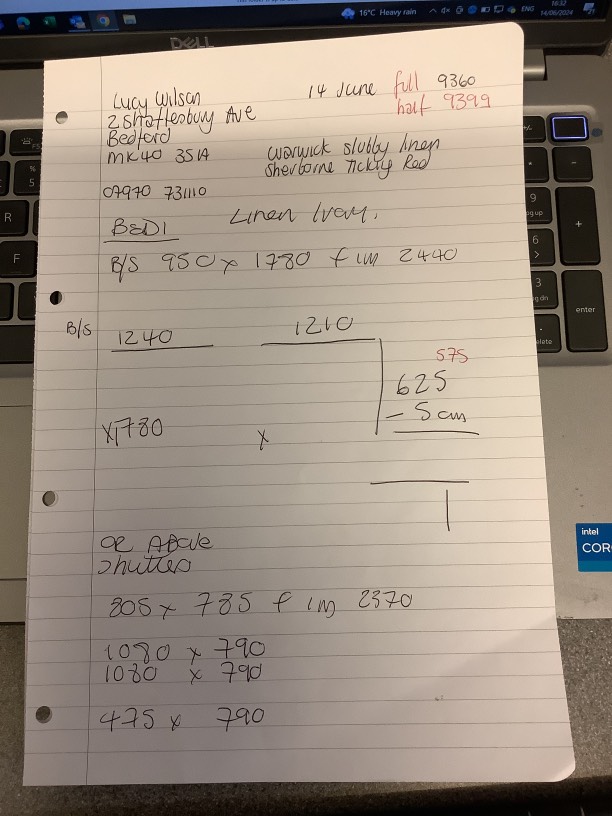 16°C Heavy rain
ENG
16:32
14/06/2024
DELL
Lucy Wilson
2 Shaftesbury Ave
Bedford
MK40 3SA
07970 731110
14 June full 9360
half 9399
Warwick slubby linen
Sherborne Ticking Red
Linen Ivory.
BED1
B/S 950 x 1780 f im 2440
B/S 1240 1210
575
625
- 5cm
x1780 x
OR Above
Shutters
805 x 785 f im 2370
1080 x 790
1080 x 790
475 x 790
intel
COR
enter
R
F
5
9
6
3
+
-